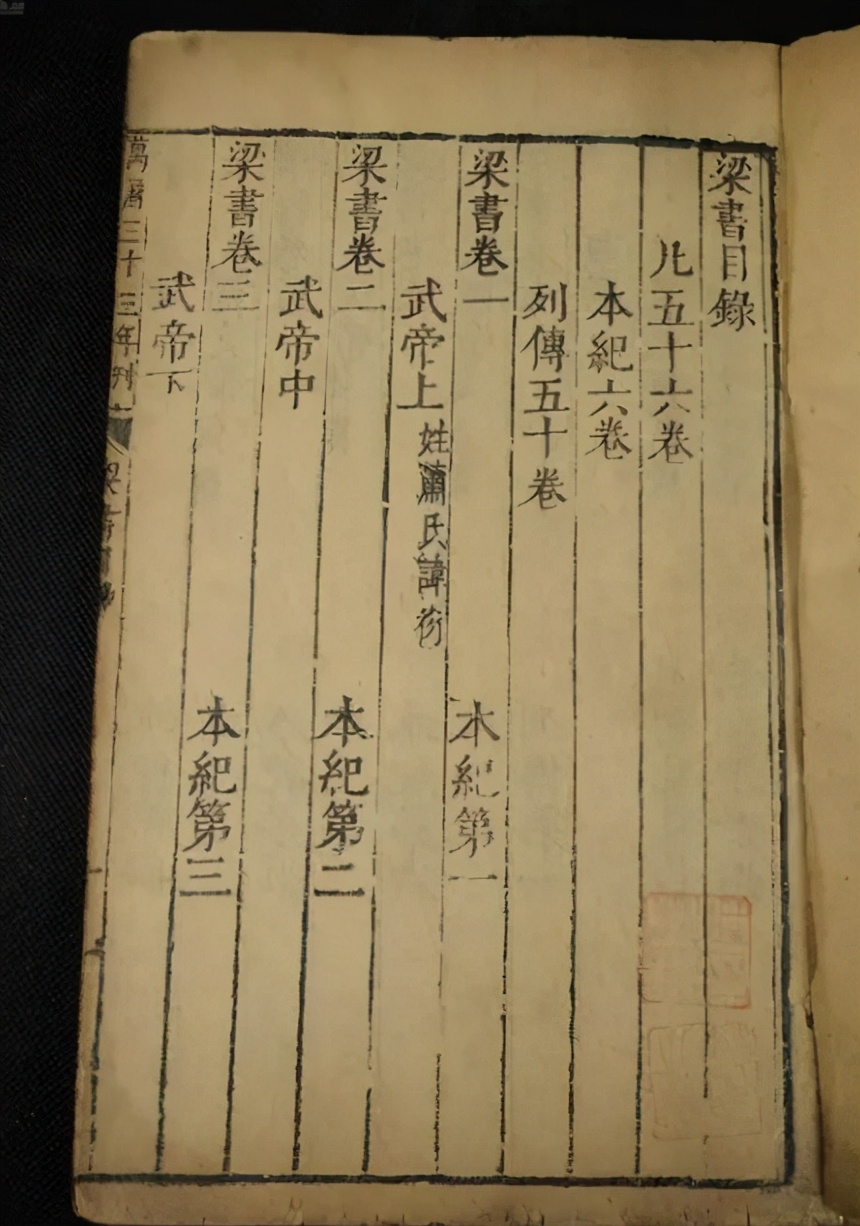 梁書目錄
凡五十六卷
本紀六卷
列傳五十卷
梁書卷一 本紀第一
武帝上 姓蕭氏諱衍
梁書卷二 本紀第二
武帝中
梁書卷三 本紀第三
武帝下
萬曆三十三年刊